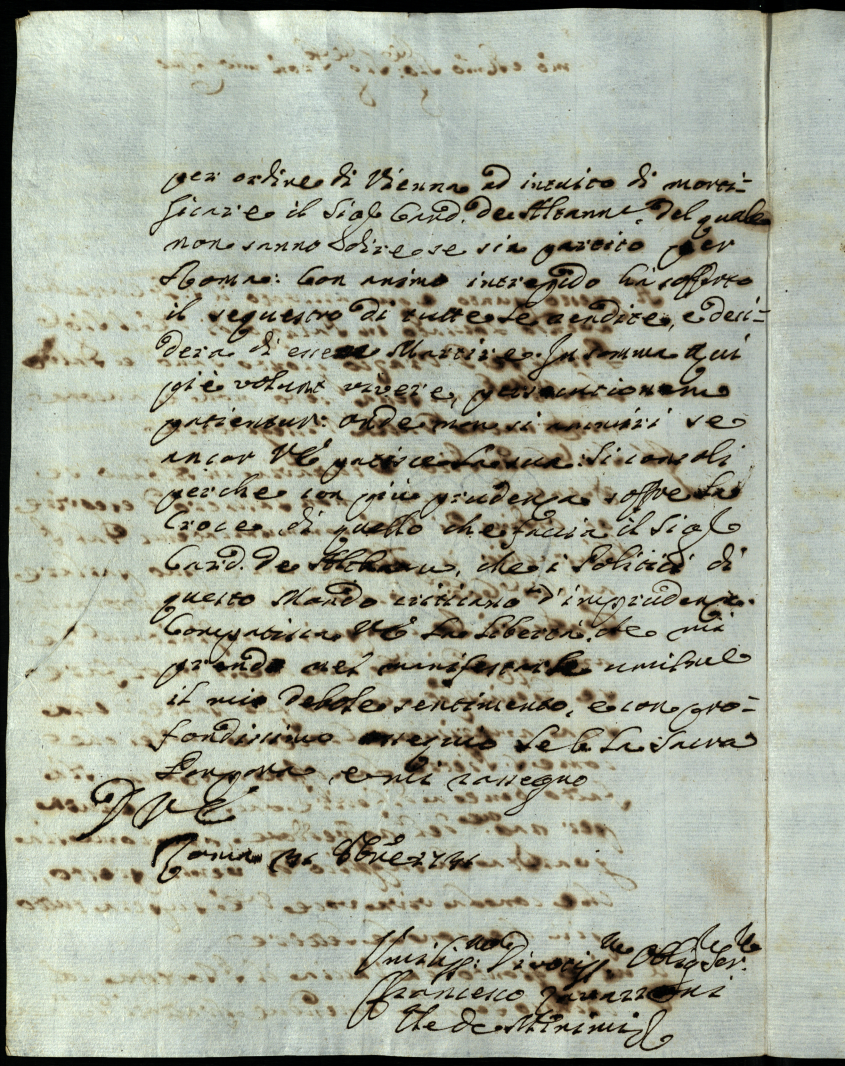 per ordine di Vienna ad intuito di morti-
ficare il Sig.r Card. de Althann, del quale
non sanno dire se sia partito per
Roma: Con animo intrepido hà sofferto
il sequestro di tutte le rendite, e desi-
dera di essere Martire. In somma Qui
piè volunt vivere, persecutionem
patientur: onde non si ammiri se
ancor V.E. patisce la sua: Si consoli
perche con più prudenza soffre la
Croce di quello che faccia il Sig.r
Card. de Althann, che i Politici di
questo Mondo critican d'imprudenza.
Compatisca V.E. la libertà, che mi
prendo nel manifestarle umilme
il mio debole sentimento, e con pro-
fondissimo ossequio le b. la Sacra
Porpora e mi rassegno
D V E
Roma 8bre
Umiliss.mo Divotiss. Obblig. Ser.
Francesco